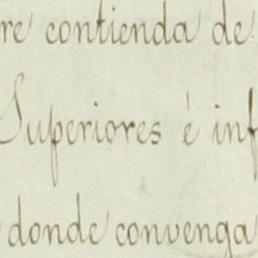 re contienda de
Superiores é inf
donde convenga